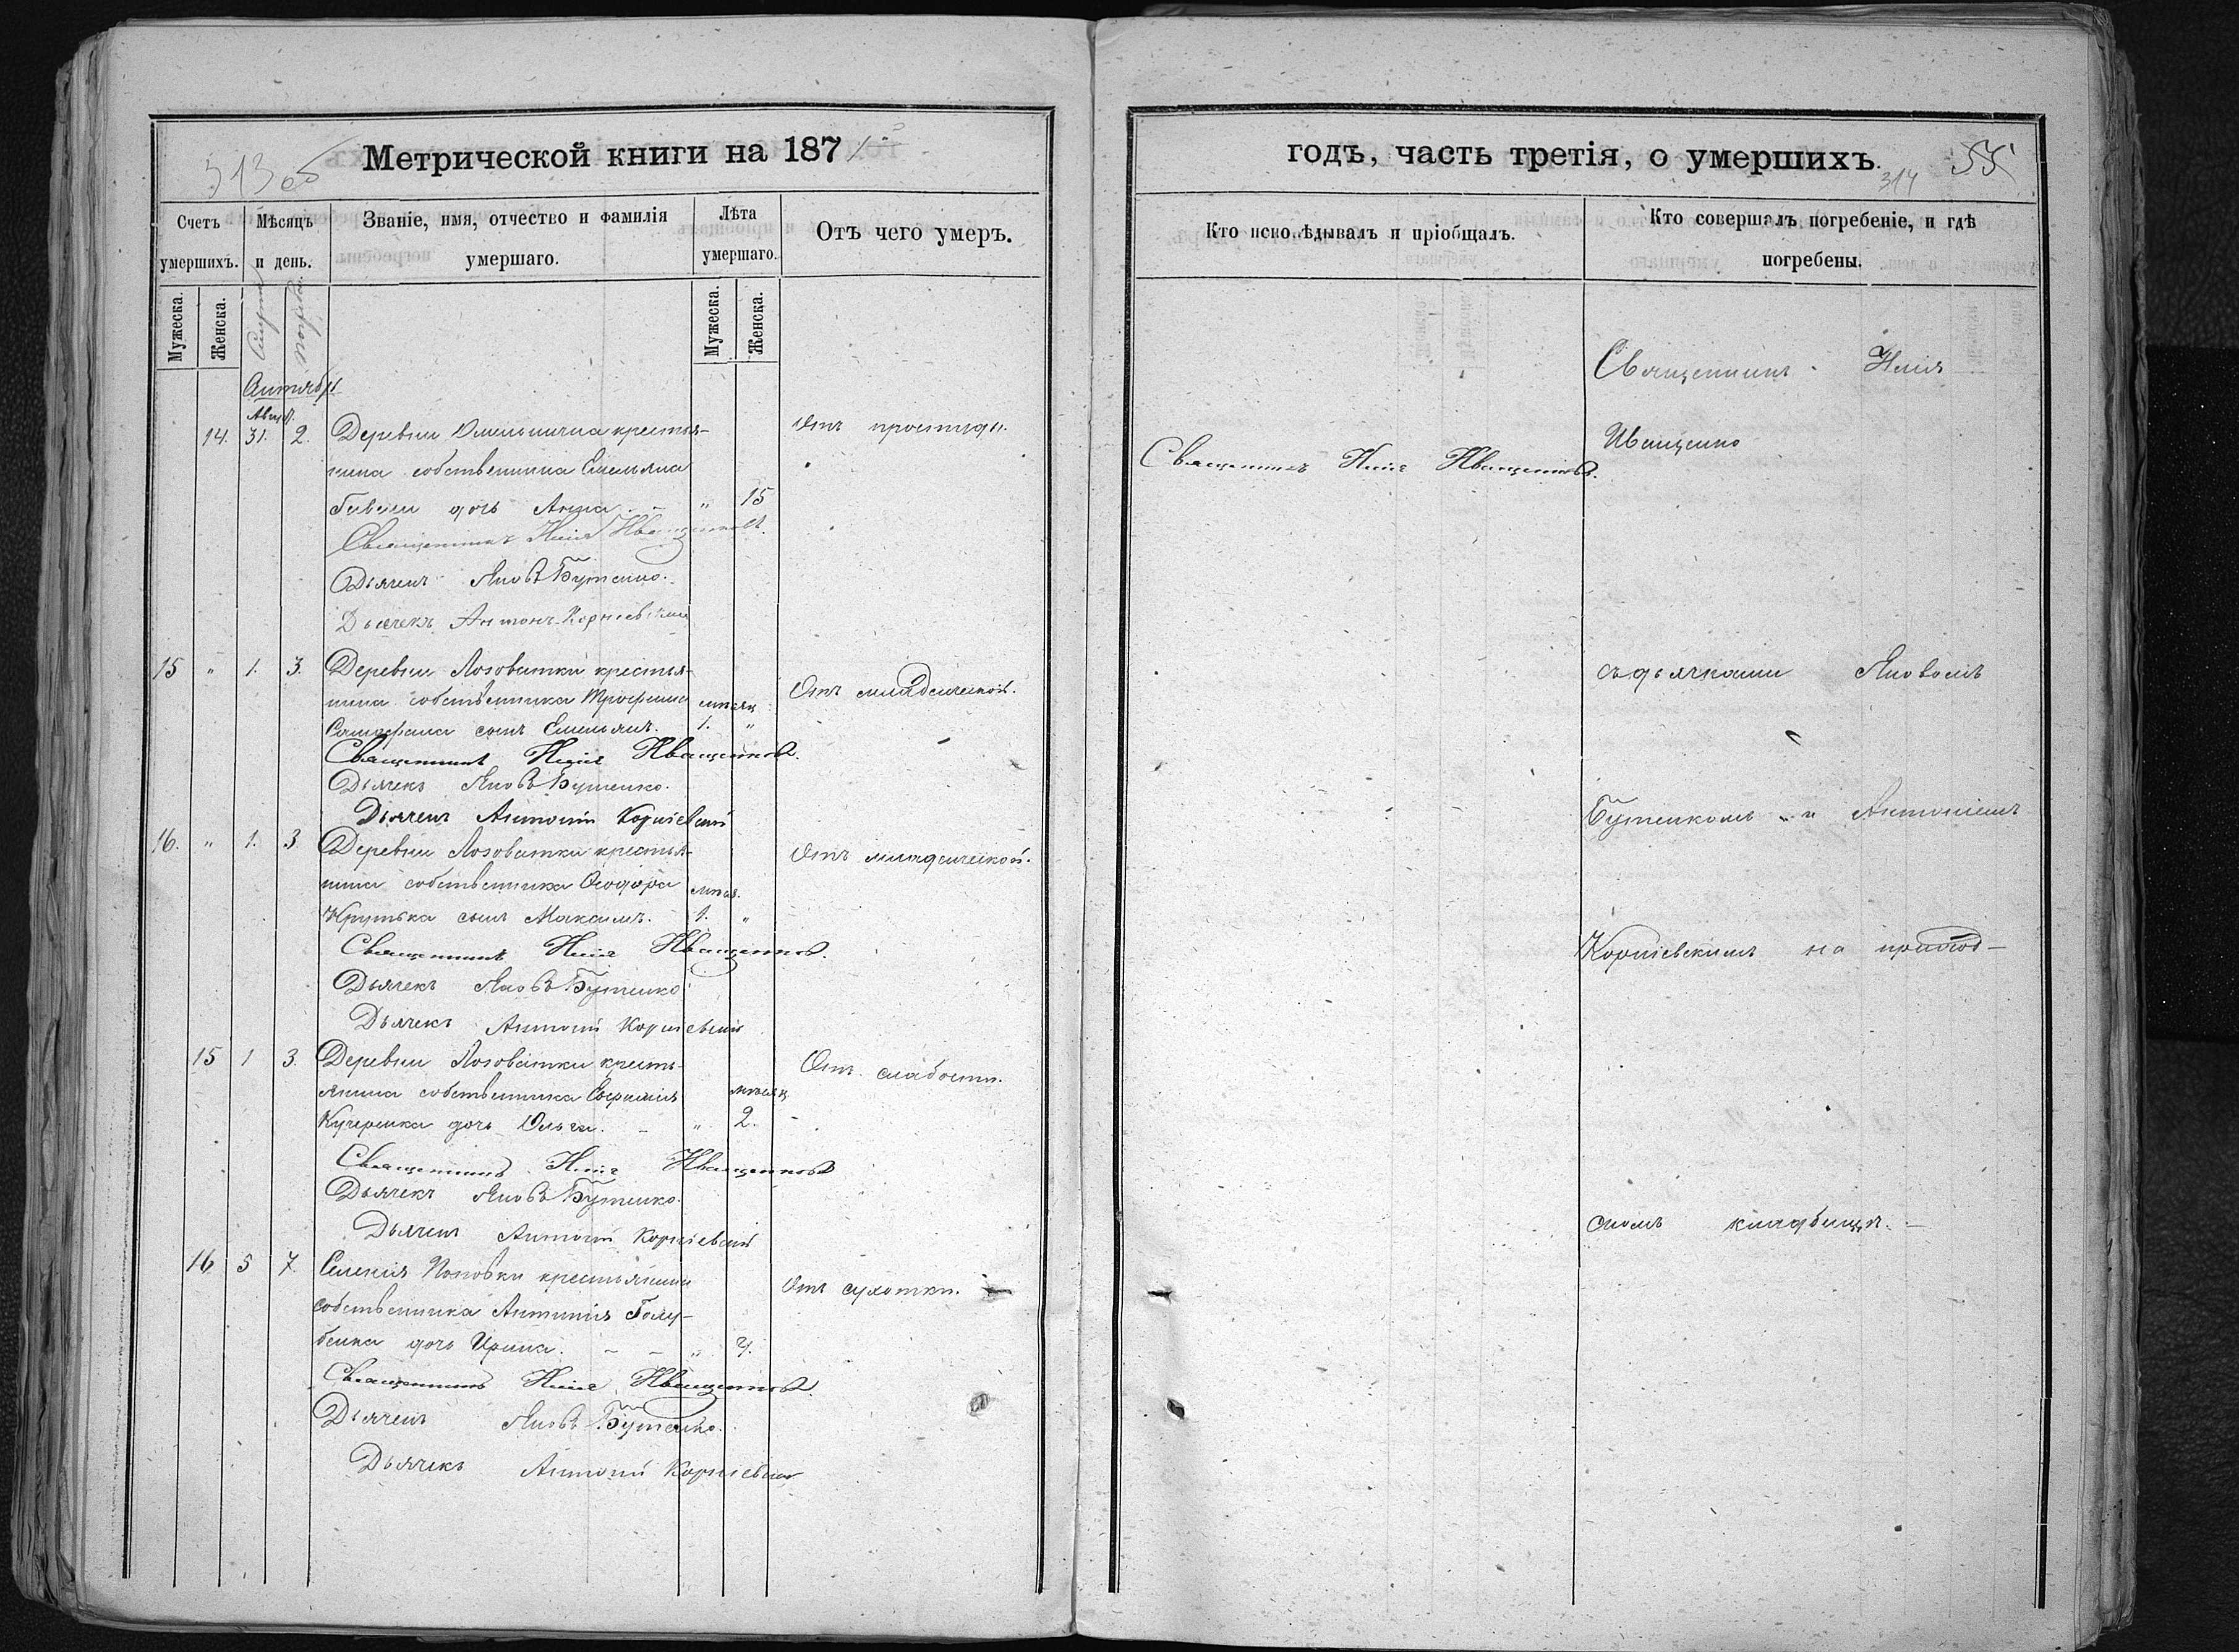 Метрической книги на 1871
313 об
Счетъ умершихъ.
Мѣсяцъ и день.
Званіе, имя, отчество и фамилія умершаго.
Лѣта умершаго.
Отъ чего умеръ.
Мужеска.
Женска.
Мужеска.
Женска.
14. 31. 2. Деревни крестья-
нина собственника Емельяна
дочь Анна. - " 15
Отъ простуды.
Священникъ Илія Иващенковъ.
Дьячекъ Яковъ Бутенко.
Дьячекъ Антонъ Корніевскій
15 " 1. 3. Деревни Лозоватки крестья-
нина собственника Трофима мѣсяц
сынъ Емельянъ. 1. "
Отъ младенческой.
Священникъ Илія Иващенковъ.
Дьячекъ Яковъ Бутенко.
Дьячекъ Антоній Корніевскій
16. " 1. 3 Деревни Лозоватки крестья-
нина собственника Ѳеодора мѣсяц.
Крутька сынъ Максимъ. 1. "
Отъ младенческой.
Священникъ Илія Иващенковъ.
Дьячекъ Яковъ Бутенко
Дьячекъ Антоній Корніевскій
15 1 3. Деревни Лозоватки кресть-
янина собственника Евфимія мѣсяц
Кучеренка дочь Ольга. - " 2.
Отъ слабости.
Священникъ Илія Иващенковъ
Дьячекъ Яковъ Бутенко.
Дьячекъ Антоній Корніевскій
16 5 7. Селенія Поповки крестьянина
собственника Антонія Голу-
бенка дочь Ирина. - - "
Отъ сухотки.
Священникъ Илія Иващенковъ.
Дьячекъ Яковъ Бутенко.
Дьячекъ Антоній Корніевскій
годъ, часть третія, о умершихъ.
314
55
Кто исповѣдывалъ и пріобщалъ.
Кто совершалъ погребеніе, и гдѣ погребены.
Священникъ Илія Иващенковъ.
Священникъ Илія
Иващенко
съ дьячками Яковомъ
Бутенкомъ и Антоніемъ
Корніевскимъ на приход-
скомъ кладбищѣ. -